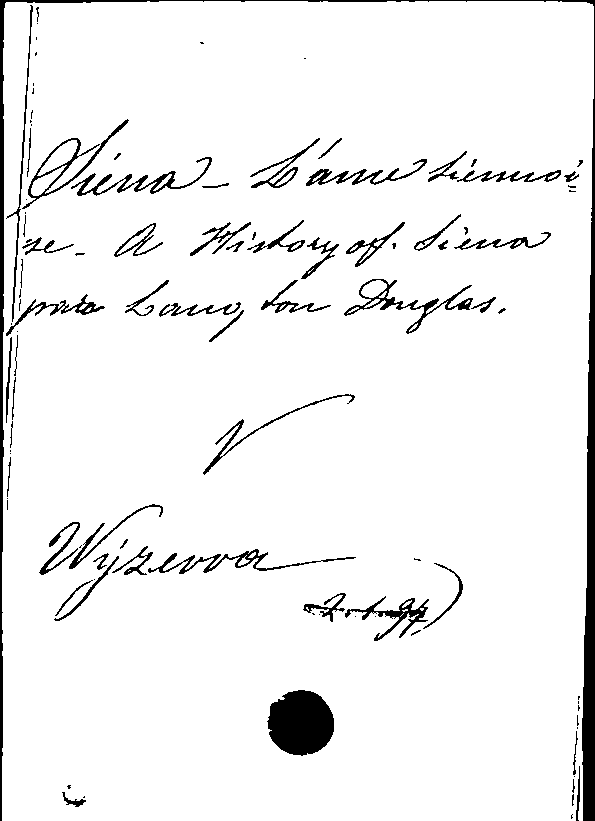 Siéna - L'âme siennoi
se - A History of. Siena
para Langton Douglas.
V
Wyzewa